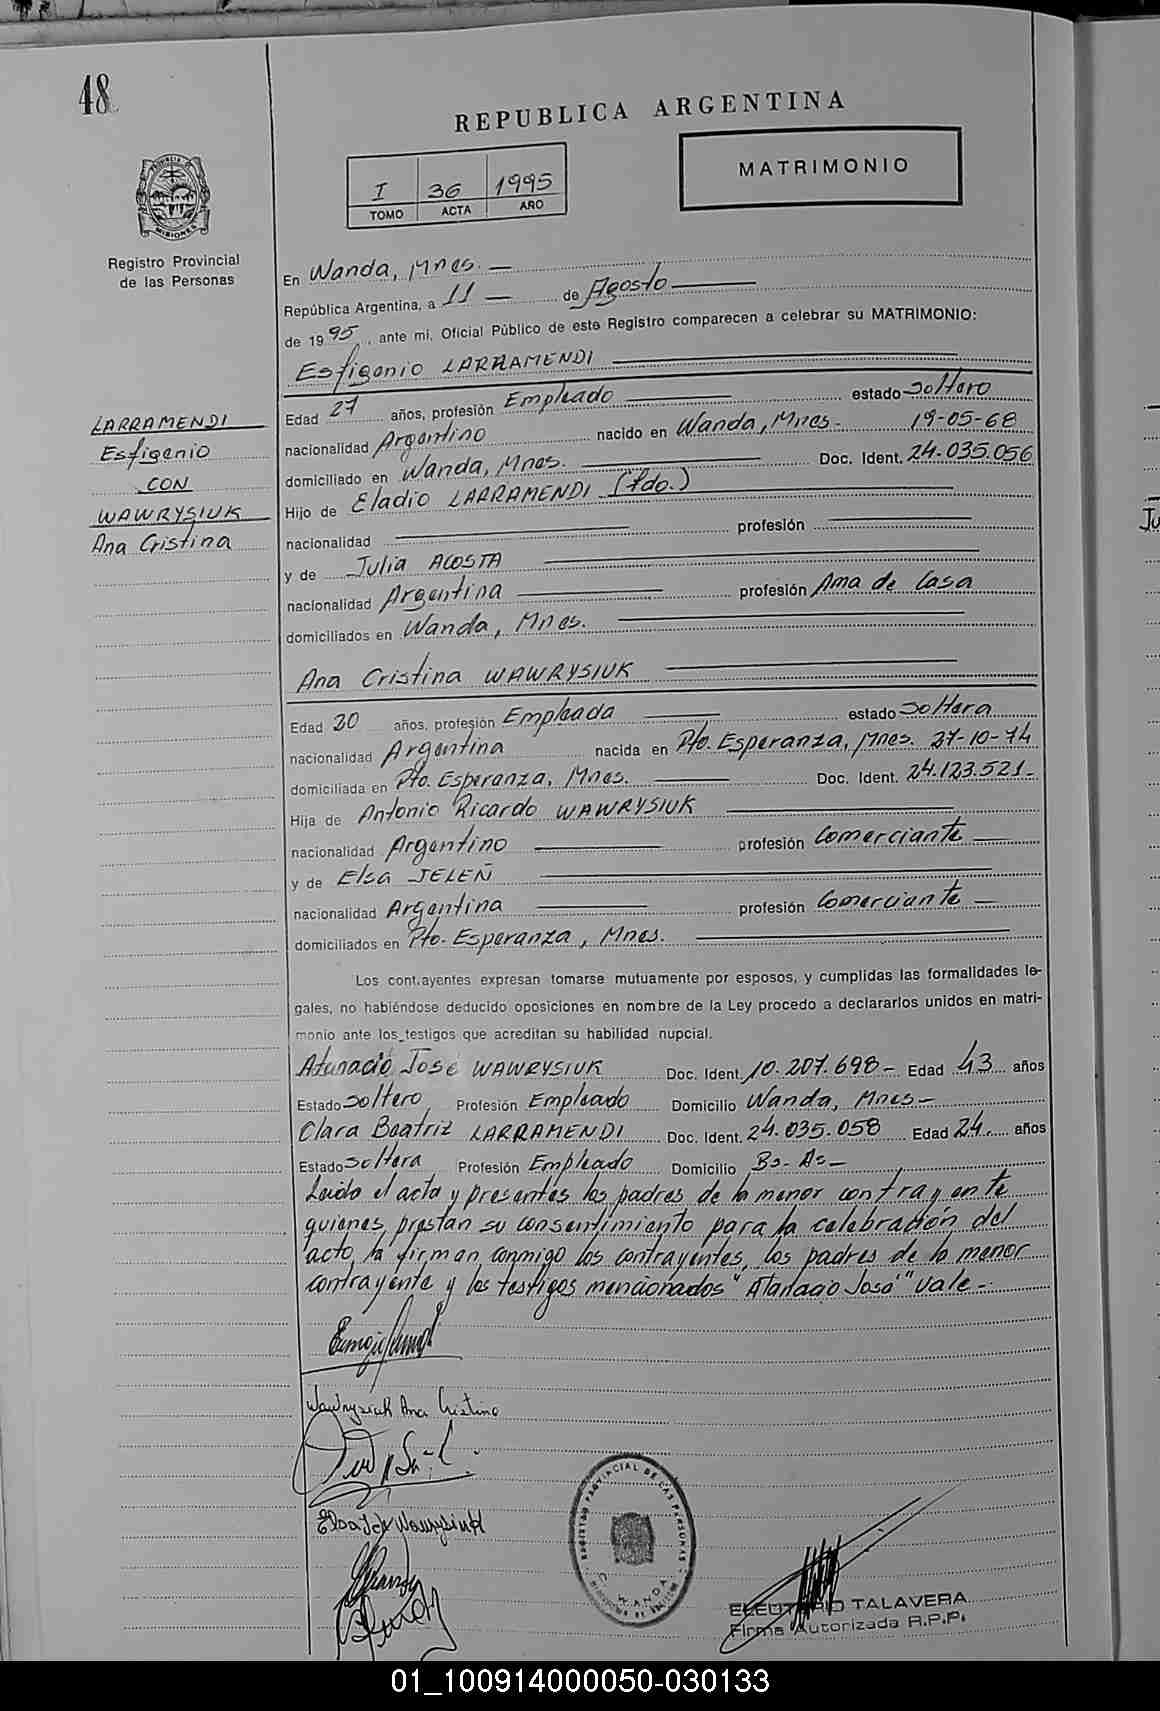 48
REPUBLICA ARGENTINA
I 36 1995
TOMO ACTA AÑO
MATRIMONIO
PROVINCIA DE
MISIONES
Registro Provincial
de las Personas
En Wanda, Mnes. —
República Argentina, a 11 — de Agosto —
de 1995, ante mi, Oficial Público de este Registro comparecen a celebrar su MATRIMONIO:
Esfigenio LARRAMENDI
LARRAMENDI
Esfigenio
CON
WAWRYSIUK
Ana Cristina
Edad 27 años, profesión Empleado — estado Soltero
nacionalidad Argentino nacido en Wanda, Mnes. 19-05-68
domiciliado en Wanda, Mnes. — Doc. Ident. 24.035.056
Hijo de Eladio LARRAMENDI (fdo.)
nacionalidad — profesión —
y de Julia ACOSTA
nacionalidad Argentina — profesión Ama de Casa
domiciliados en Wanda, Mnes. —
Ana Cristina WAWRYSIUK —
Edad 20 años, profesión Empleada — estado Soltera
nacionalidad Argentina nacida en Pto. Esperanza, Mnes. 27-10-74
domiciliada en Pto. Esperanza, Mnes. — Doc. Ident. 24.123.521-
Hija de Antonio Ricardo WAWRYSIUK —
nacionalidad Argentino — profesión Comerciante —
y de Elsa JELEÑ —
nacionalidad Argentina — profesión Comerciante —
domiciliados en Pto. Esperanza, Mnes. —
Los contrayentes expresan tomarse mutuamente por esposos, y cumplidas las formalidades le-
gales, no habiéndose deducido oposiciones en nombre de la Ley procedo a declararlos unidos en matri-
monio ante los testigos que acreditan su habilidad nupcial.
José WAWRYSIUK Doc. Ident. 10.207.698- Edad 43 años
Estado Soltero Profesión Empleado Domicilio Wanda, Mnes-
Clara Beatriz LARRAMENDI Doc. Ident. 24.035.058 Edad 24 años
Estado Soltera Profesión Empleado Domicilio Bs-As-
Leída el acta y presentes los padres de la menor contrayente
quienes prestan su consentimiento para la celebración del
acto, la firman conmigo los contrayentes, los padres de la menor
contrayente y los testigos mencionados "Atanacio José" vale-
Wawrysiuk Ana Cristina
Elsa Wawrysiuk
REGISTRO PROVINCIAL DE LAS PERSONAS
WANDA
ELEUTERIO TALAVERA
Firma Autorizada R.P.P.
01_100914000050-030133